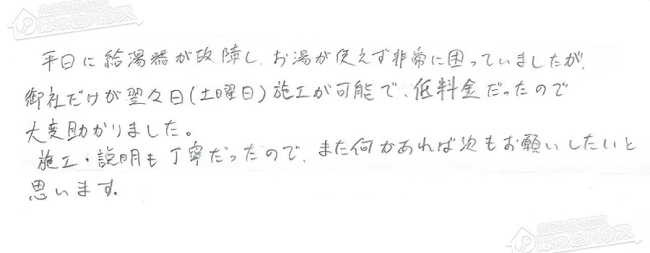 平日に給湯器が故障し、お湯が使えず非常に困っていましたが、
御社だけが翌々日(土曜日)施工が可能で、低料金だったので
大変助かりました。
施工・説明も丁寧だったので、また何かあれば次もお願いしたいと
思います。